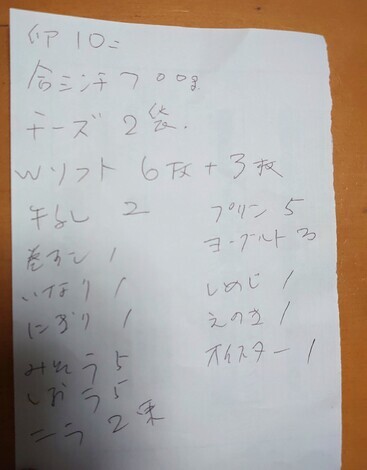 卵 10コ
合ミンチ 700g
チーズ 2袋.
Wソフト 6枚+3枚
牛なし 2
巻ずし 1
いなり 1
にぎり 1
みそラ 5
しおラ 5
ニラ 2束
プリン 5
ヨーグルト 3
しめじ 1
えのき 1
オイスター 1